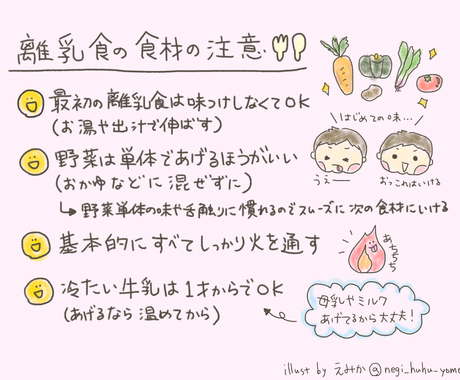 離乳食の食材の注意
最初の離乳食は味つけしなくてOK
(お湯や出汁で伸ばす)
はじめての味…
野菜は単体であげるほうがいい
(おかゆなどに混ぜずに)
うえー
おっこれはいける
↳野菜単体の味や舌触りに慣れるのでスムーズに次の食材にいける
基本的にすべてしっかり火を通す
あちちち
冷たい牛乳は1才からでOK
(あげるなら温めてから)
母乳やミルク
あげてるから大丈夫!
illust by えみか@negi_huhu_yome